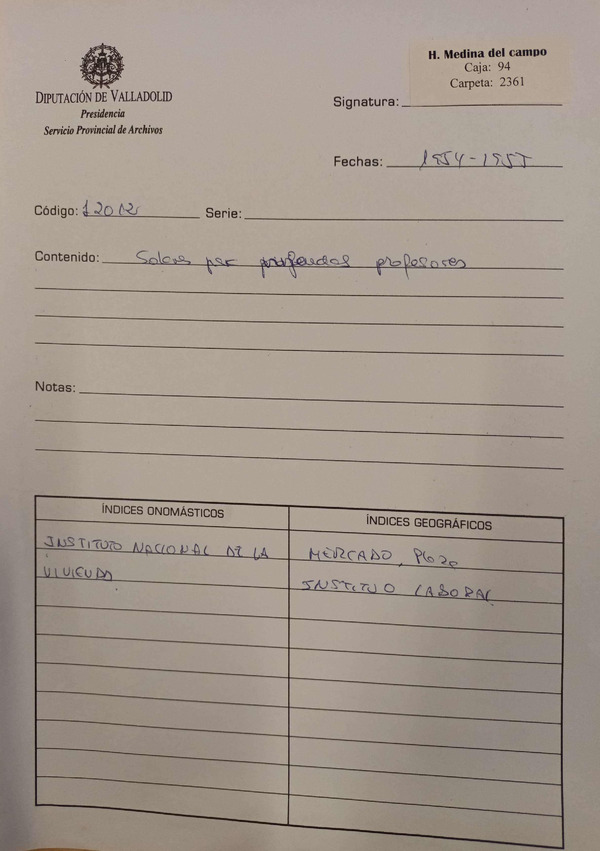 H. Medina del campo
Caja: 94
Carpeta: 2361
DIPUTACIÓN DE VALLADOLID
Presidencia
Servicio Provincial de Archivos
Signatura:
Fechas: 1954-1955
Código: 12012 Serie:
Contenido: profesores
Notas:
ÍNDICES ONOMÁSTICOS
ÍNDICES GEOGRÁFICOS
INSTITUTO NACIONAL DE LA
VIVIENDA
MERCADO, Plaza
INSTITUO LABORAL